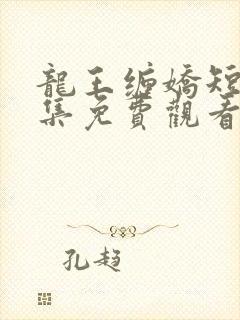 龍王缠嬌短
集免費觀看
孔趋